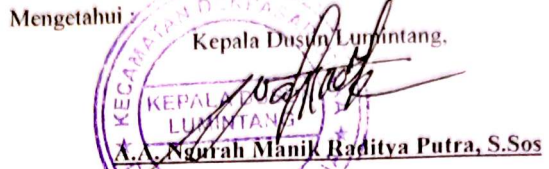 Mengetahui :
Kepala Dusun Lumintang,
KECAMATAN DENPASAR
KEPALA DUSUN
LUMINTANG
A.A. Ngurah Manik Raditya Putra, S.Sos